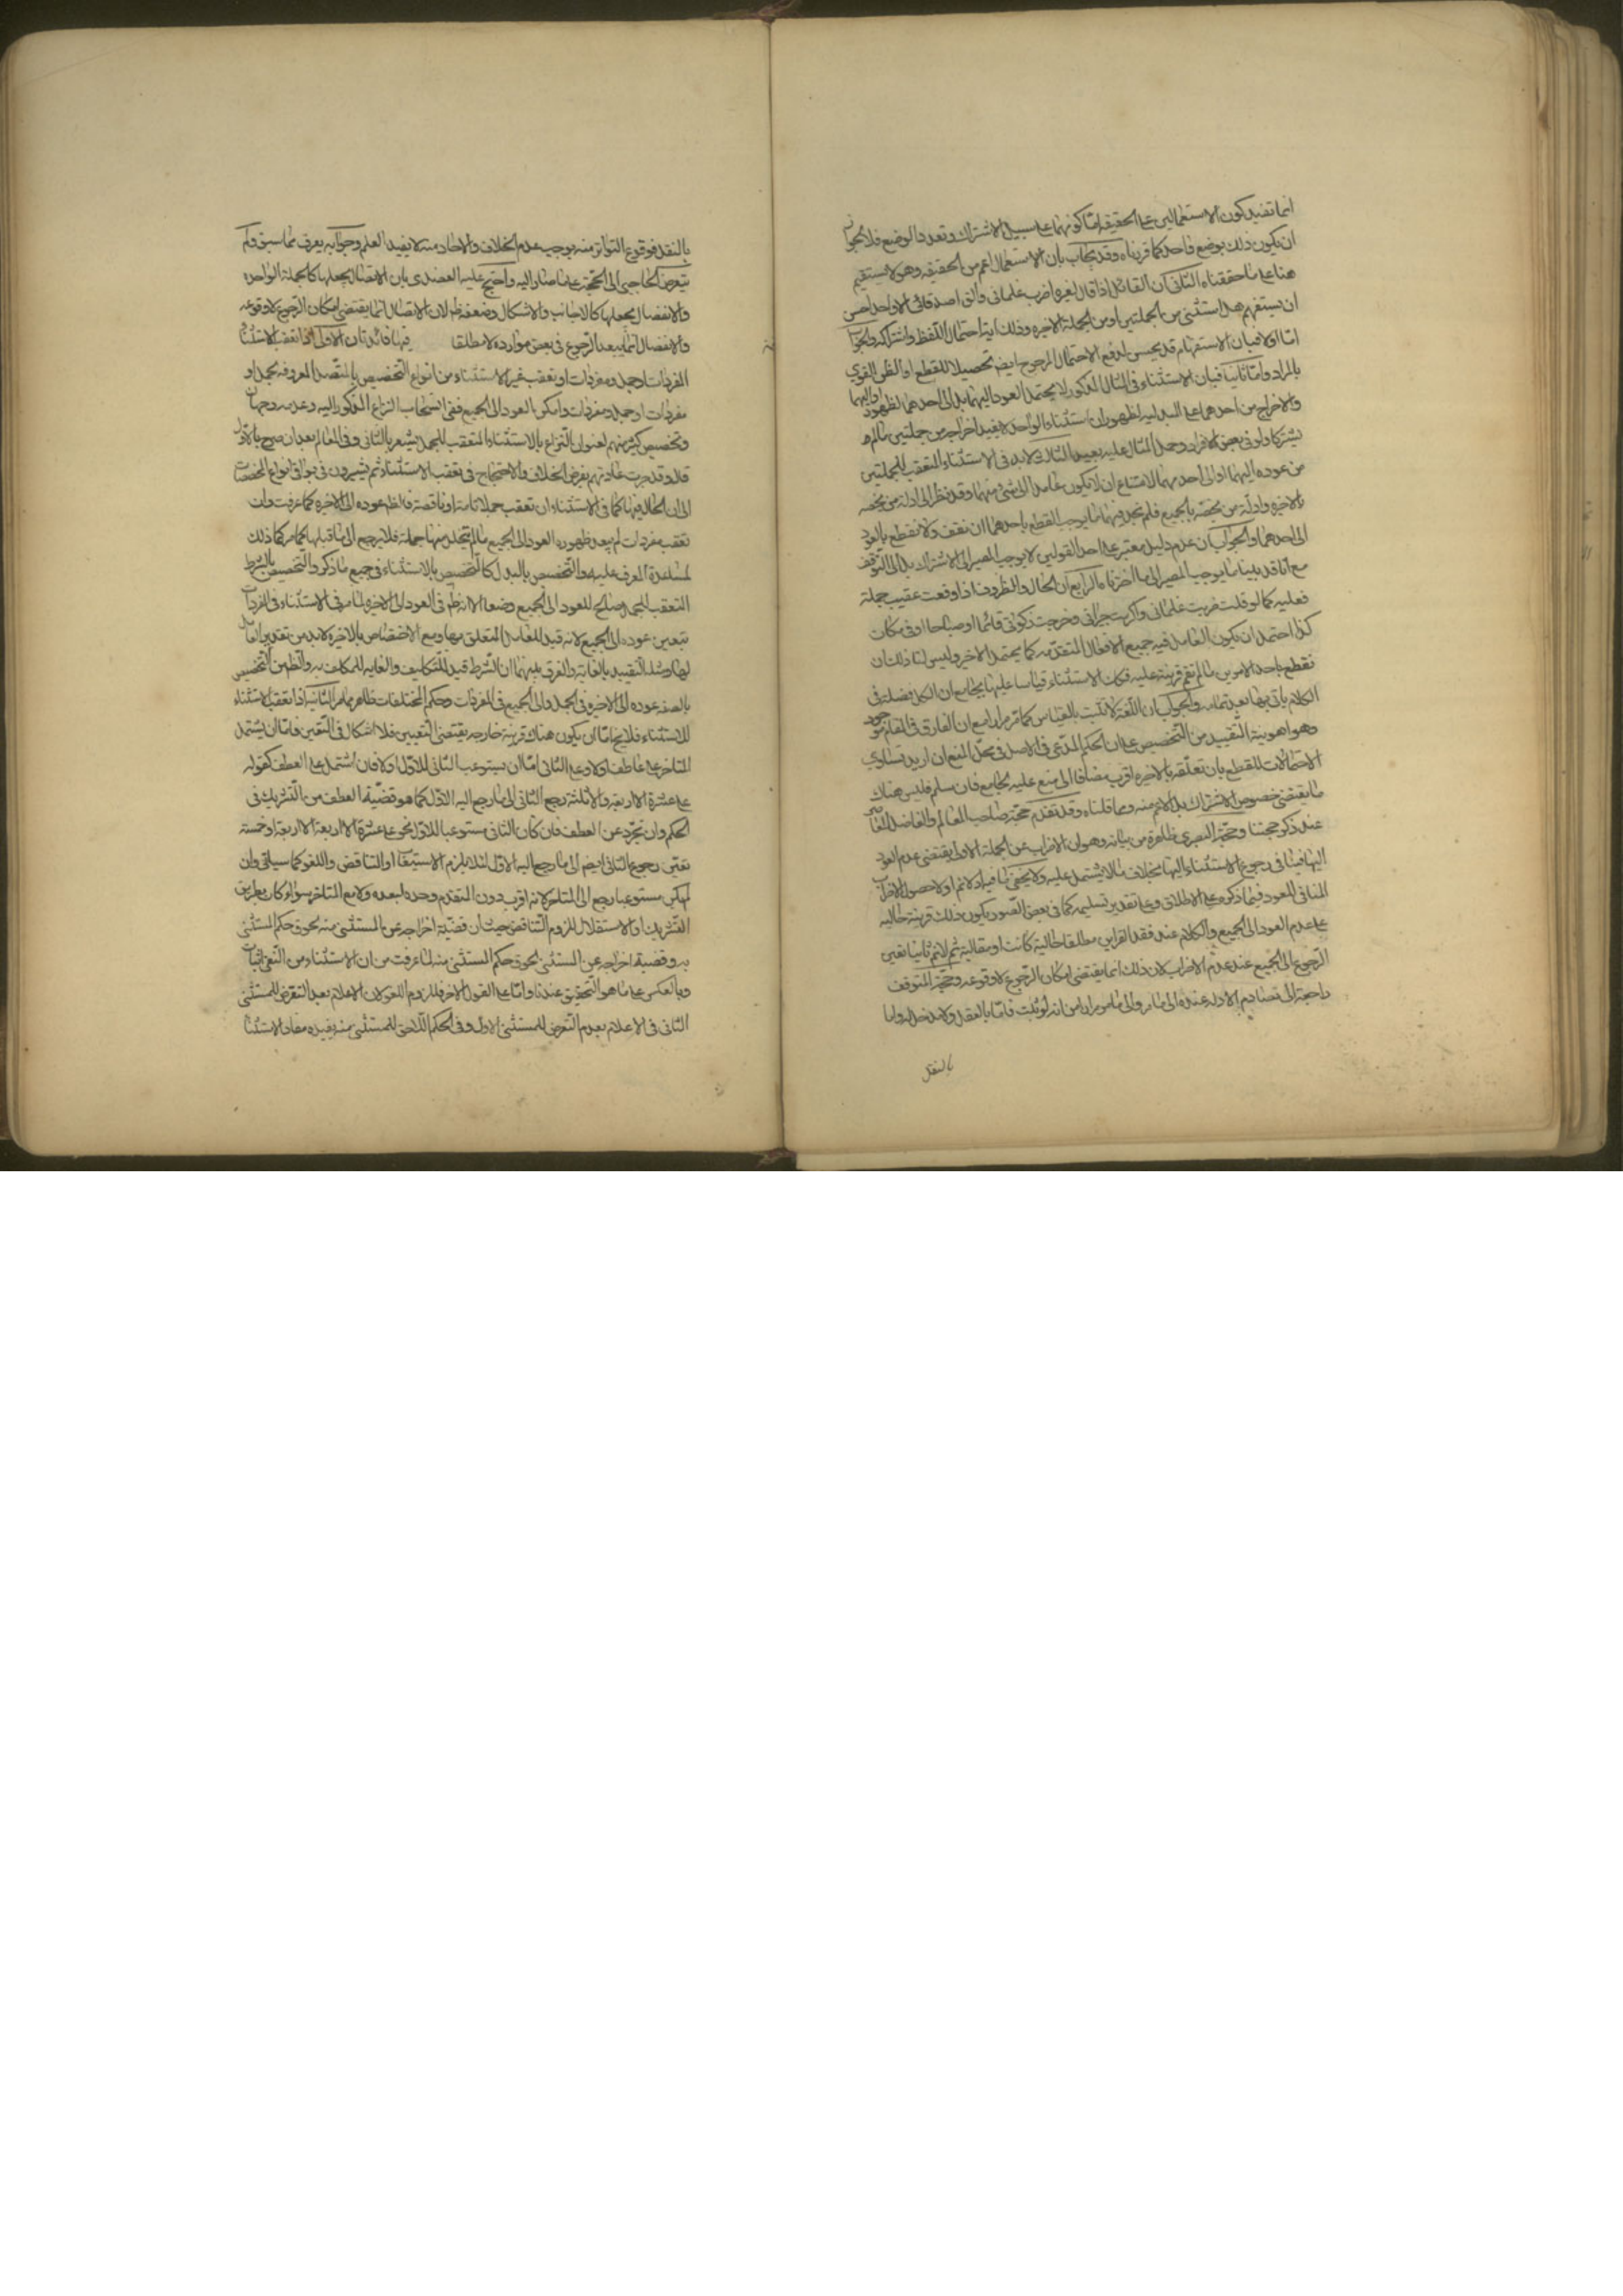 انما تفيد كون الاستعمالين على الحقيقة اما كونهما على سبيل الاشتراك وتعدد الوضع فلا لجواز
ان يكون ذلك بوضع واحد كما قررناه وقد يجاب بان الاستعمال اعم من الحقيقة وهو لا يستقيم
هنا على ما حققناه الثاني ان القائل اذا قال لغيره اضرب غلماني والق اصدقائي الا واحدا حسن
ان يستفهم هل استثنى من الجملتين او من الجملة الاخيرة وذلك اية احتمال اللفظ واشتراكه والجواب
اما اولا فبان الاستفهام قد يحسن لدفع الاحتمال المرجوح ايضا تحصيلا للقطع او الظن القوي
بالمراد واما ثانيا فبان الاستثناء في المثال المذكور لا يحتمل العود اليهما بل الى احدهما لظهور
والاخراج من احدهما على البدلية لظهور ان استثناء الواحد لا يفيد اخراجه من جملتين ما لم
يشتركا ولو في بعض الافراد وحمل المثال عليه بعيد الثالث لا بد في الاستثناء المتعقب للجملتين
من عوده اليهما او الى احدهما لامتناع ان لا يكون عائدا الى شئ منهما وقد نظر الى ادلة من يخصه
بالاخيرة وادلة من يخصه بالجميع فلم نجد فيهما ما يوجب القطع باحدهما ان نقف ولا نقطع بالعود
الى احدهما والجواب ان عدم دليل معتبر على احد القولين لا يوجب المصير الى الاشتراك بل الى التوقف
مع انا قد بينا ما يوجب المصير الى ما اخترناه الرابع ان الحال والظروف اذا وقعت عقيب جملة
فعليه كما لو قلت ضربت غلماني واكرمت جيراني وخرجت زكوتي قائما او صباحا او في مكان
كذا احتمل ان يكون العامل فيه جميع الافعال المتقدمه كما يحتمل الاخير وليس لنا ذلك ان
نقطع باحد الامرين ما لم تقم قرينة عليه فكذا الاستثناء قياسا عليها بجامع ان الكل فضلة في
الكلام ياتى بها بعد تمامه والجواب ان اللغة لا تثبت بالقياس كما تقرر مع ان الفارق في المقام موجود
وهو اهوبية التقييد من التخصيص على ان الحكم المدعى في الاصل في محل المنع ان اريد تساوي
الاحتمالات للقطع بان تعلقه بالاخيرة اقرب مضافا الى منع علية الجامع فان سلم فليس هناك
ما يقتضي خصوص الاشتراك بل الاعم منه ومما قلناه وقد تقدم حجة صاحب المعالم والفاضل المعاصر
عند ذكر حجتنا وحجة البصري ظاهرة من بيانه وهو ان الاضراب عن الجملة الاولى يقتضي عدم العود
اليها فينافى رجوع الاستثناء اليها بخلاف ما لا يشتمل عليه ولا يخفى ما فيه اذ لا نم اولا حصول الاضراب
المنافي للعود فيما ذكره على الاطلاق وعلى تقدير تسليمه كما في بعض الصور يكون ذلك قرينة حالية
على عدم العود الى الجميع والكلام عند فقد القراين مطلقا حالية كانت او مقالية ثم لا نم ثانيا تعين
الرجوع الى الجميع عند عدم الاضراب لان ذلك انما يقتضي امكان الرجوع لا وقوعه وحجة المتوقف
راجعة الى تصادم الادلة عنده الى ما مر والى ما مر مرارا من انه لو ثبت فاما بالعقل ولا مدخل له واما
بالنقل
بالنقل فوقوع التواتر منه يوجب عدم الخلاف والاحاد منه لا يفيد العلم وجوابه يعرف مما سبق ولم
يتعرض الحاجبي الى الحجة على ما صار اليه واحتج عليه العضدي بان الاتصال يجعلها كالجملة الواحدة
والانفصال يجعلها كالاجانب والاشكال وضعفه ظ لان الاتصال انما يقتضي امكان الرجوع لا وقوعه
والانفصال انما يبعد الرجوع في بعض موارده لا مطلقا فهنا فائدتان الاولى اذا تعقب الاستثناء
المفردات او جمل ومفردات او تعقب غير الاستثناء من انواع التخصيص بالمتصل المعروفه بجمل او
مفردات او جمل ومفردات وامكن العود الى الجميع ففي انسحاب النزاع المذكور اليه وعدمه وجهان
وتخصيص كثير منهم لعنوان النزاع بالاستثناء المتعقب للجمل يشعر بالثاني وفي المعالم بعد ان صرح بالاول
قال وقد جرت عادتهم بفرض الخلاف والاحتجاج في تعقب الاستثناء ثم يشيرون في بواقي انواع المخصصات
الى ان الحال فيها كما في الاستثناء ان تعقب جملا تامة او ناقصة فالظ عوده الى الاخيرة كما عرفت وان
تعقب مفردات لم يبعد ظهوره العود الى الجميع ما لم يتخلل منها جملة فلا يرجع الى ما قبلها كما مر كما ذلك
لمساعدة العرف عليه والتخصيص بالبدل كالتخصيص بالاستثناء في جميع ما ذكر والتخصيص بالشرط
المتعقب للجمل صالح للعود الى الجميع وضعا الا انه ظاهر في العود الى الاخيرة لما مر في الاستثناء وفي المفردات
يتعين عوده الى الجميع لانه قيد للعامل المتعلق بها ومع الاختصاص بالاخيرة لا بد من تقدير العامل
لها ومثله التقييد بالغاية والفرق بينهما ان الشرط قيد للتكليف والغاية للمكلف به والظ من التخصيص
بالصفه عوده الى الاخيرة في الجمل والى الجميع في المفردات وحكم المختلفات ظاهر مما مر الثانية اذا تعقب الاستثناء
للاستثناء فلا يخ اما ان يكون هناك قرينة خارجه يقتضي التعيين فلا اشكال في التعين واما ان يشتمل
المتاخر على عاطف او لا وعلى الثاني اما ان يستوعب الثاني للاول او لا فان اشتمل على العطف كقوله
على عشرة الا اربعة والا ثلثة رجع الثاني الى ما رجع اليه الاول كما هو قضية العطف من التشريك في
الحكم وان تجرد عن العطف فان كان الثاني مستوعبا للاول نحو على عشرة الا اربعة الا اربعة او خمسة
تعين رجوع الثاني ايضا الى ما رجع اليه الاول لئلا يلزم الاستيعاب او التناقض واللغو كما سياتى وان
لم يكن مستوعبا رجع الى المتاخر لانه اقرب دون المتقدم وحده لبعده ولا مع المتاخر سواء كان بطريق
التشريك او الاستقلال للزوم التناقض حيث ان قضية اخراجه عن المستثنى منه لحوق حكم المستثنى
به وقضية اخراجه عن المستثنى لحوق حكم المستثنى منه لما عرفت من ان الاستثناء من النفي اثبات
وبالعكس على ما هو التحقيق عندنا واما على القول الاخر فللزوم اللغو لان الاعلام بعد التعرض للمستثنى
الثاني في الاعلام بعدم التعرض للمستثنى الاول وفي الحكم اللاحق للمستثنى منه يفيده مفاد الاستثناء